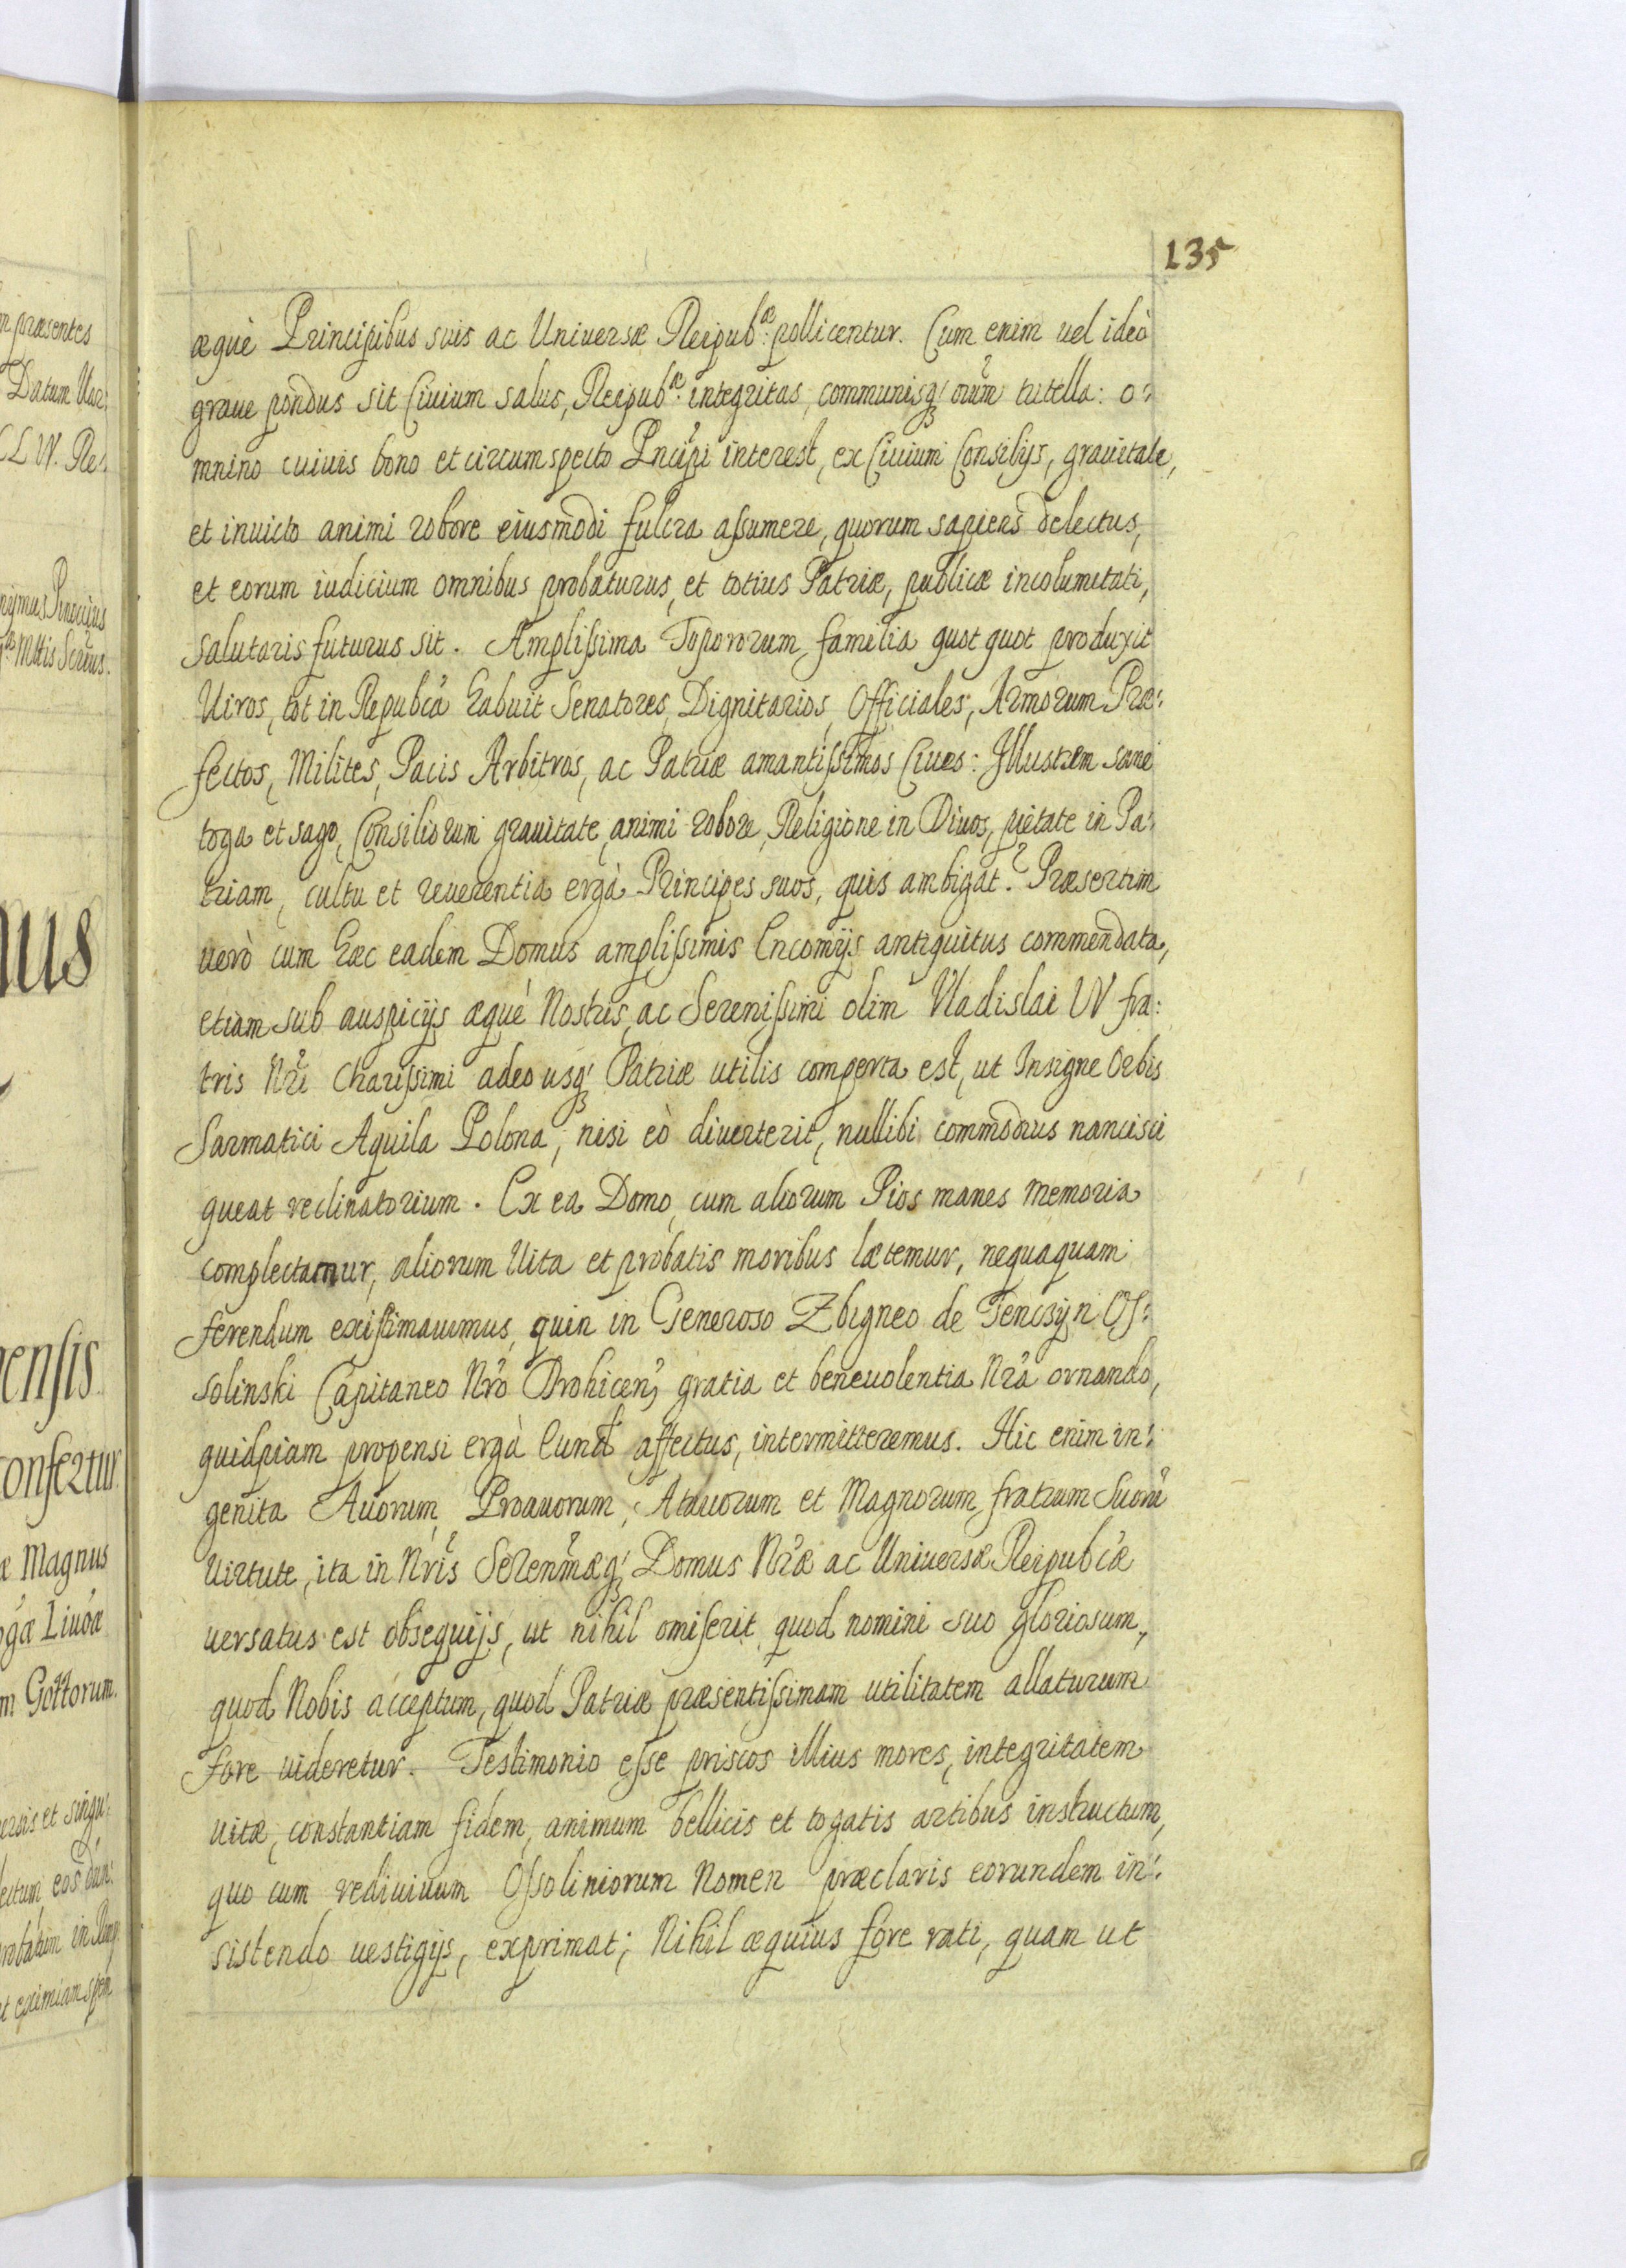 135
æquè Principibus suis ac Uniuersæ Reipub:æ pollicentur. Cum enim uel ideò
graue pondus sit Ciuium salus, Reipub:æ integritas, communisq́ȝ oium̃ tutella: o:
mnino cuiuis bono et circumspecto Pncipi interest, ex Ciuium Consilijs, grauitate,
et inuicto animi robore eiusmodi fulcra aſsumere, quorum sapiens delectus,
et eorum iudicium omnibus probaturus, et totius Patriæ, publicæ incolumitati,
salutaris futurus sit. Ampliſsima Topororum familia quot quot produxit
Uiros, tot in Repubcá habuit Senatores, Dignitarios, Officiales, Armorum Præ:
fectos, Milites, Pacis Arbitros, ac Patriæ amantiſsimos Ciues: Illustrem sane
toga et sago, Consiliorum grauitate, animi robore, Religione in Diuos, pietate in Pa:
triam, cultu et reuerentia ergà Principes suos, quis ambigat? Præsertim
uerò cum hæc eadem Domus ampliſsimis Encomijs antiquitus commendata,
etiam sub auspicijs æquè Nostris, ac Sereniſsimi olim Vladislai IV fra:
tris Nri Chariſsimi adeo usq́ȝ Patriæ utilis comperta est, ut Insigne Orbis
Sarmatici Aquila Polona, nisi eò diuerterit, nullibi commodius nancisci
queat reclinatorium. Ex ea Domo, cum aliorum Pios manes memoria
complectamur, aliorum Uita et probatis moribus lætemur, nequaquam
ferendum exiſtimauimus, quin in Generoso Zbigneo de Tenczyn Oſ:
solinski Capitaneo Nró Drohicenȝ gratia et beneuolentia Nrá ornando,
quidpiam propensi ergà Eund affectus, intermitteremus. Hic enim in:
genita Auorum, Proauorum, Atauorum et Magnorum fratrum Suorũ
Uirtute, ita in Nris Serenmæq́ȝ Domus Nræ ac Uniuersæ Reipubcæ
uersatus est obsequijs, ut nihil omiſerit quod nomini suo gloriosum,
quod Nobis acceptum, quod Patriæ præsentiſsimam utilitatem allaturum
fore uideretur. Testimonio eſse priscos illius mores, integritatem
uitæ, constantiam fidem, animum bellicis et togatis artibus instructum,
quo cum rediuiuum Oſsoliniorum Nomen præclaris eorundem in:
sistendo uestigijs, exprimat; Nihil æquius fore rati, quam ut